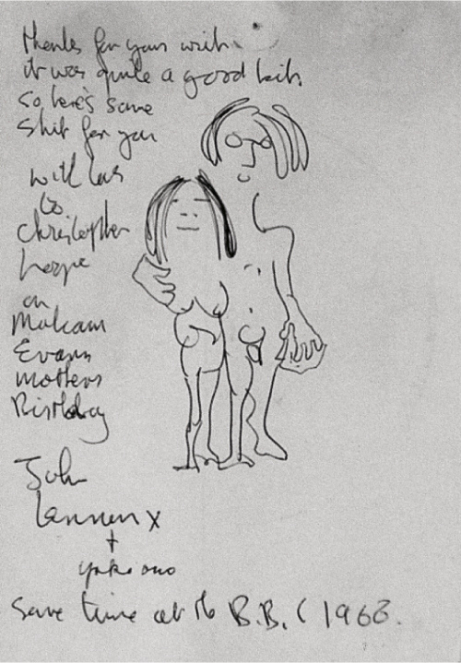 thanks for your writ
it was quite a good bit.
so here's some
shit for you
with love
to
Christopher
on
Malcam
Evans
mothers
Birthday
John
Lennon x
+
yoko ono
some time at the B.B.C 1968.